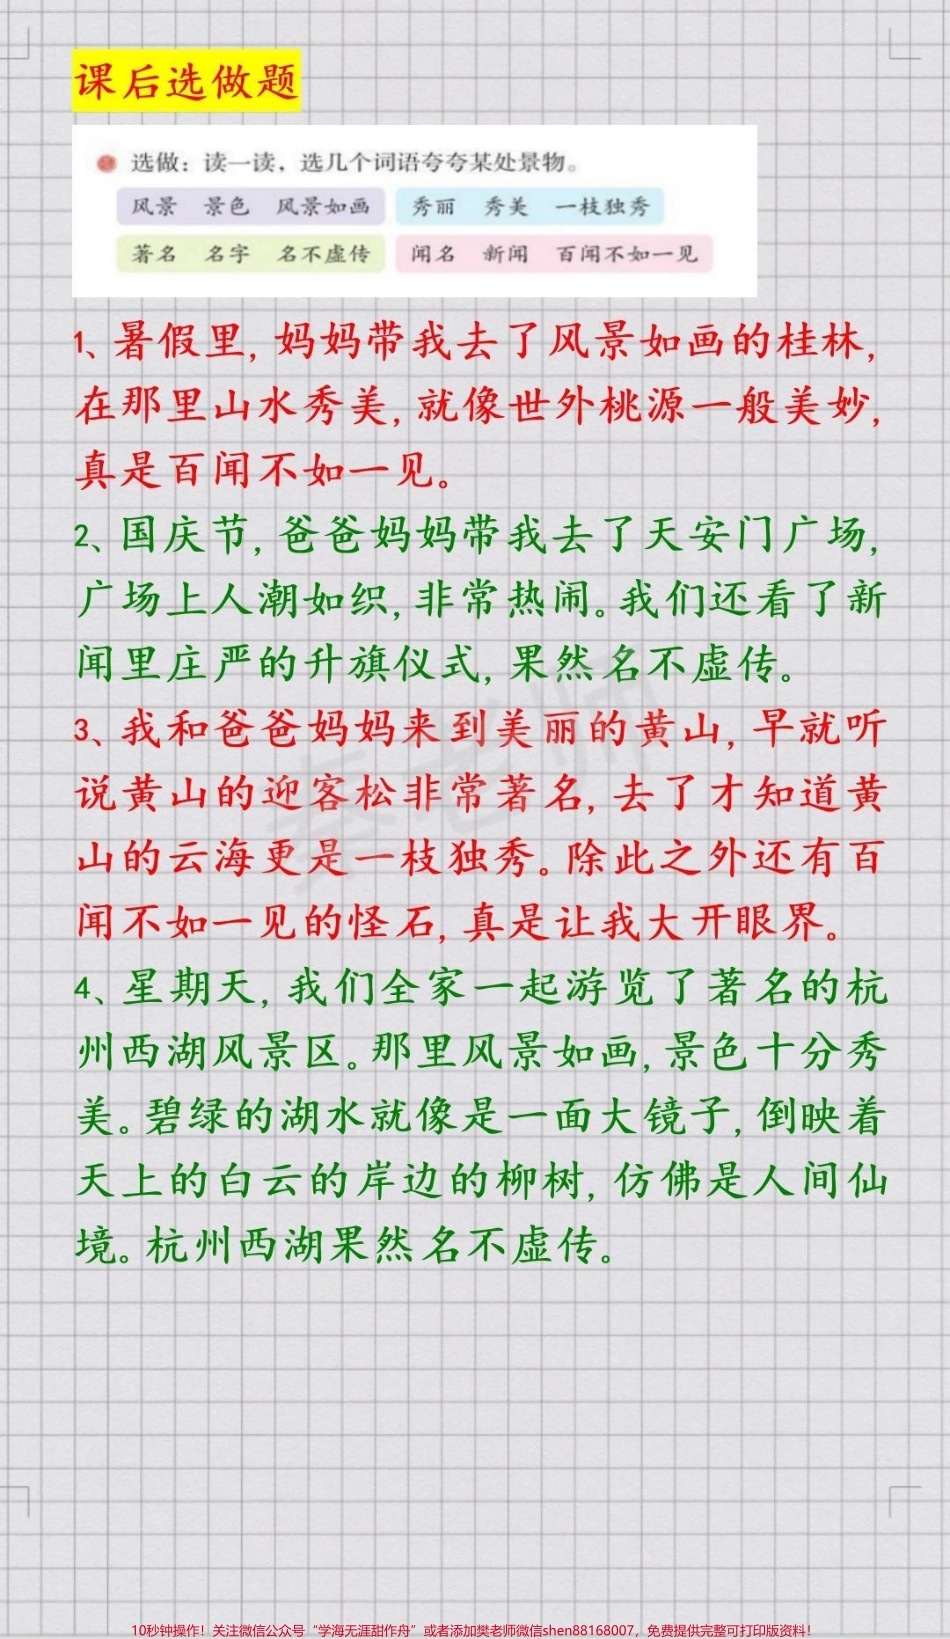 课后选做题
选做：读一读，选几个词语夸夸某处景物。
风景 景色 风景如画 秀丽 秀美 一枝独秀
著名 名字 名不虚传 闻名 新闻 百闻不如一见
1、暑假里，妈妈带我去了风景如画的桂林，
在那里山水秀美，就像世外桃源一般美妙，
真是百闻不如一见。
2、国庆节，爸爸妈妈带我去了天安门广场，
广场上人潮如织，非常热闹。我们还看了新
闻里庄严的升旗仪式，果然名不虚传。
3、我和爸爸妈妈来到美丽的黄山，早就听
说黄山的迎客松非常著名，去了才知道黄
山的云海更是一枝独秀。除此之外还有百
闻不如一见的怪石，真是让我大开眼界。
4、星期天，我们全家一起游览了著名的杭
州西湖风景区。那里风景如画，景色十分秀
美。碧绿的湖水就像是一面大镜子，倒映着
天上的白云的岸边的柳树，仿佛是人间仙
境。杭州西湖果然名不虚传。
10秒钟操作！关注微信公众号“学海无涯甜作舟”或者添加樊老师微信shen88168007，免费提供完整可打印版资料！